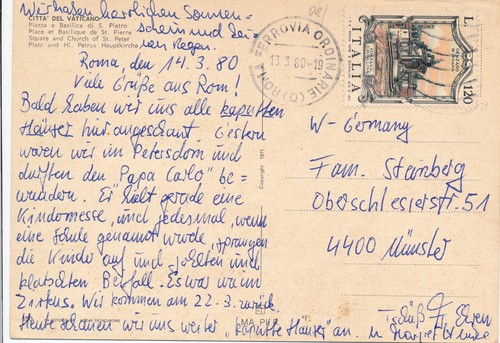 Wir haben herrlichen Sonnen-
schein und kei-
nen Regen.
CITTA' DEL VATICANO
Piazza e Basilica di S. Pietro
Place et Basilique de St. Pierre
Square and Church of St. Peter
Platz und Hl. Petrus Hauptkirche
Roma, den 14.3.80
Viele Grüße aus Rom!
Bald haben wir uns alle kaputten
Häuser hier angeschaut. Gestern
waren wir im Petersdom und
durften den "Papa Carlo" be=
wundern. Er hielt gerade eine
Kindermesse, und jedesmal, wenn
eine Schule genannt wurde, sprangen
die Kinder auf und johlten und
klatschten Beifall. Es war wie im
Zirkus. Wir kommen am 22.3. zurück.
Heute schauen wir uns weiter "kaputte Häuser" an.
Copyright 1971
ROMA FERROVIA ORDINARIE
13.3.80-19
L. 120
ITALIA
W-Germany
Fam. Steinberg
Oberschlesierstr. 51
4400 Münster